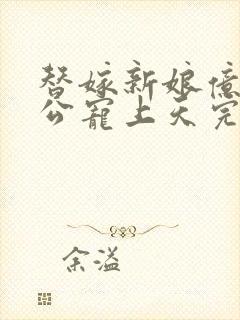 替嫁新娘億
公寵上天完
余溢